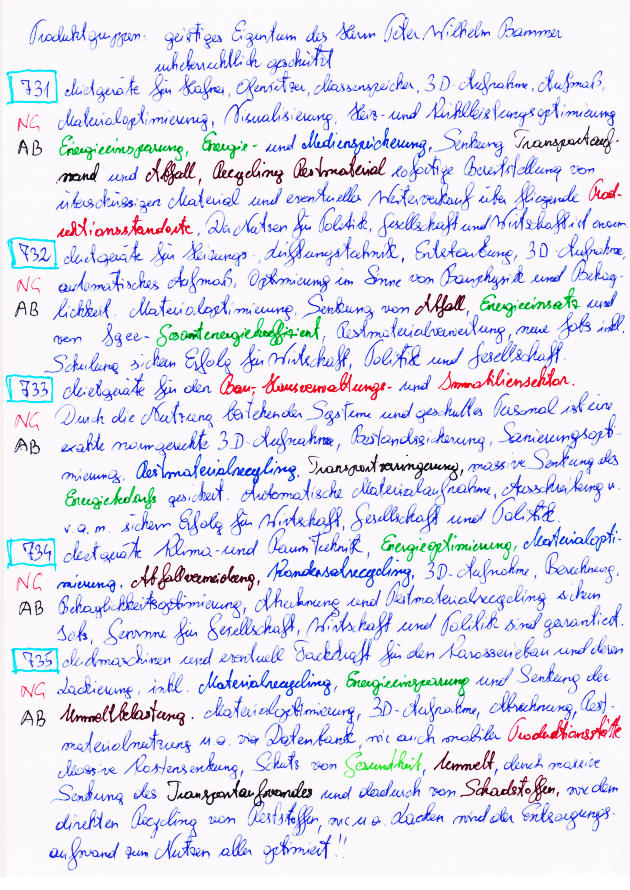 Produktgruppen- geistiges Eigentum des Herrn Peter Wilhelm Bammer
urheberrechtlich geschützt
731 Mietgeräte für Hafner, Ofensetzer, Massenspeicher, 3D-Aufnahme, Aufmaß,
NG Materialoptimierung, Visualisierung, Heiz- und Kühlleistungsoptimierung
AB Energieeinsparung, Energie- und Medienspeicherung, Senkung Transportauf-
wand und Abfall, Recycling Restmaterial sofortige Bereitstellung von
überschüssigen Material und eventueller Weiterverkauf über fliegende Prod-
uktionsstandorte. Der Nutzen für Politik, Gesellschaft und Wirtschaft ist enorm.
732 Mietgeräte für Heizungs-, Lüftungstechnik, Entstaubung, 3D-Aufnahme,
NG automatisches Aufmaß, Optimierung im Sinne von Bauphysik und Behag-
AB lichkeit. Materialoptimierung, Senkung von Abfall, Energieeinsatz und
von fgee- Gesamtenergiekoeffizient, Restmaterialverwertung, neue Jobs inkl.
Schulung sichern Erfolg für Wirtschaft, Politik und Gesellschaft.
733 Mietgeräte für den Bau-, Hausverwaltungs- und Immobiliensektor.
NG Durch die Nutzung bestehender Systeme und geschultes Personal ist eine
AB exakte normgerechte 3D-Aufnahme, Bestandssicherung, Sanierungsopti-
mierung, Restmaterialrecycling, Transportverringerung, massive Senkung des
Energiebedarfs gesichert. Automatische Materialaufnahme, Ausschreibung u.
v. a. m. sichern Erfolg für Wirtschaft, Gesellschaft und Politik.
734 Mietgeräte Klima- und Raumtechnik, Energieoptimierung, Materialopti-
NG mierung, Abfallvermeidung, Kondensatrecycling, 3D-Aufnahme, Berechnung,
AB Behaglichkeitsoptimierung, Abrechnung und Restmaterialrecycling sichern
Jobs, Gewinne für Gesellschaft, Wirtschaft und Politik sind garantiert.
735 Mietmaschinen und eventuell Fachkraft für den Karosseriebau und deren
NG Lackierung, inkl. Materialrecycling, Energieeinsparung und Senkung der
AB Umweltbelastung. Materialoptimierung, 3D-Aufnahme, Abrechnung, Rest-
materialnutzung u. a. via Datenbank wie auch mobiler Produktionsstätte
Massive Kostensenkung, Schutz von Gesundheit, Umwelt, durch massive
Senkung des Transportaufwandes und dadurch von Schadstoffen, wie dem
direkten Recycling von Reststoffen, wie u. a. Lacken wird der Entsorgungs-
aufwand zum Nutzen aller optimiert!!